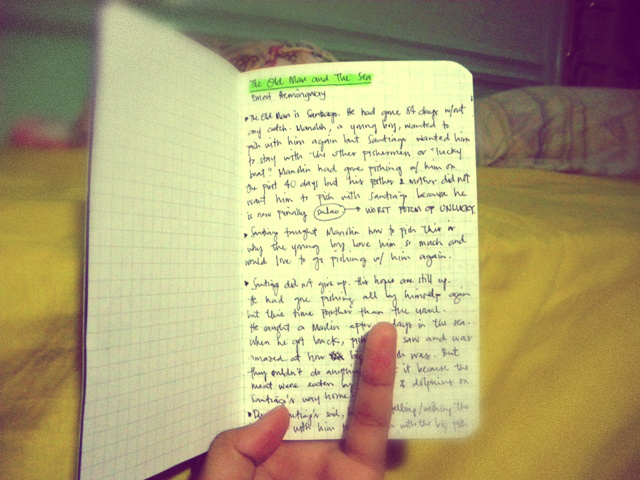 The Old Man and The Sea
Ernest Hemingway
• The Old Man is Santiago. He had gone 84 days w/out
any catch. Manolin, a young boy, wanted to
fish with him again but Santiago wanted him
to stay with the other fishermen or "lucky
boat." Manolin had gone fishing w/ him on
the first 40 days but his father & mother did not
want him to fish with Santiago because he
is now finally salao → WORST FORM OF UNLUCKY
• Santiago taught Manolin how to fish this is
why the young boy love him so much and
would love to go fishing w/ him again.
• Santiago did not give up. His hopes are still up.
He had gone fishing all by himself again
but this time farther than the usual.
He caught a Marlin after days in the sea.
When he got back, saw and was
amazed at how was. But
they couldn't do it because the
meat were eaten & dolphins on
Santiago's way home
• said, the
with him with the big fish